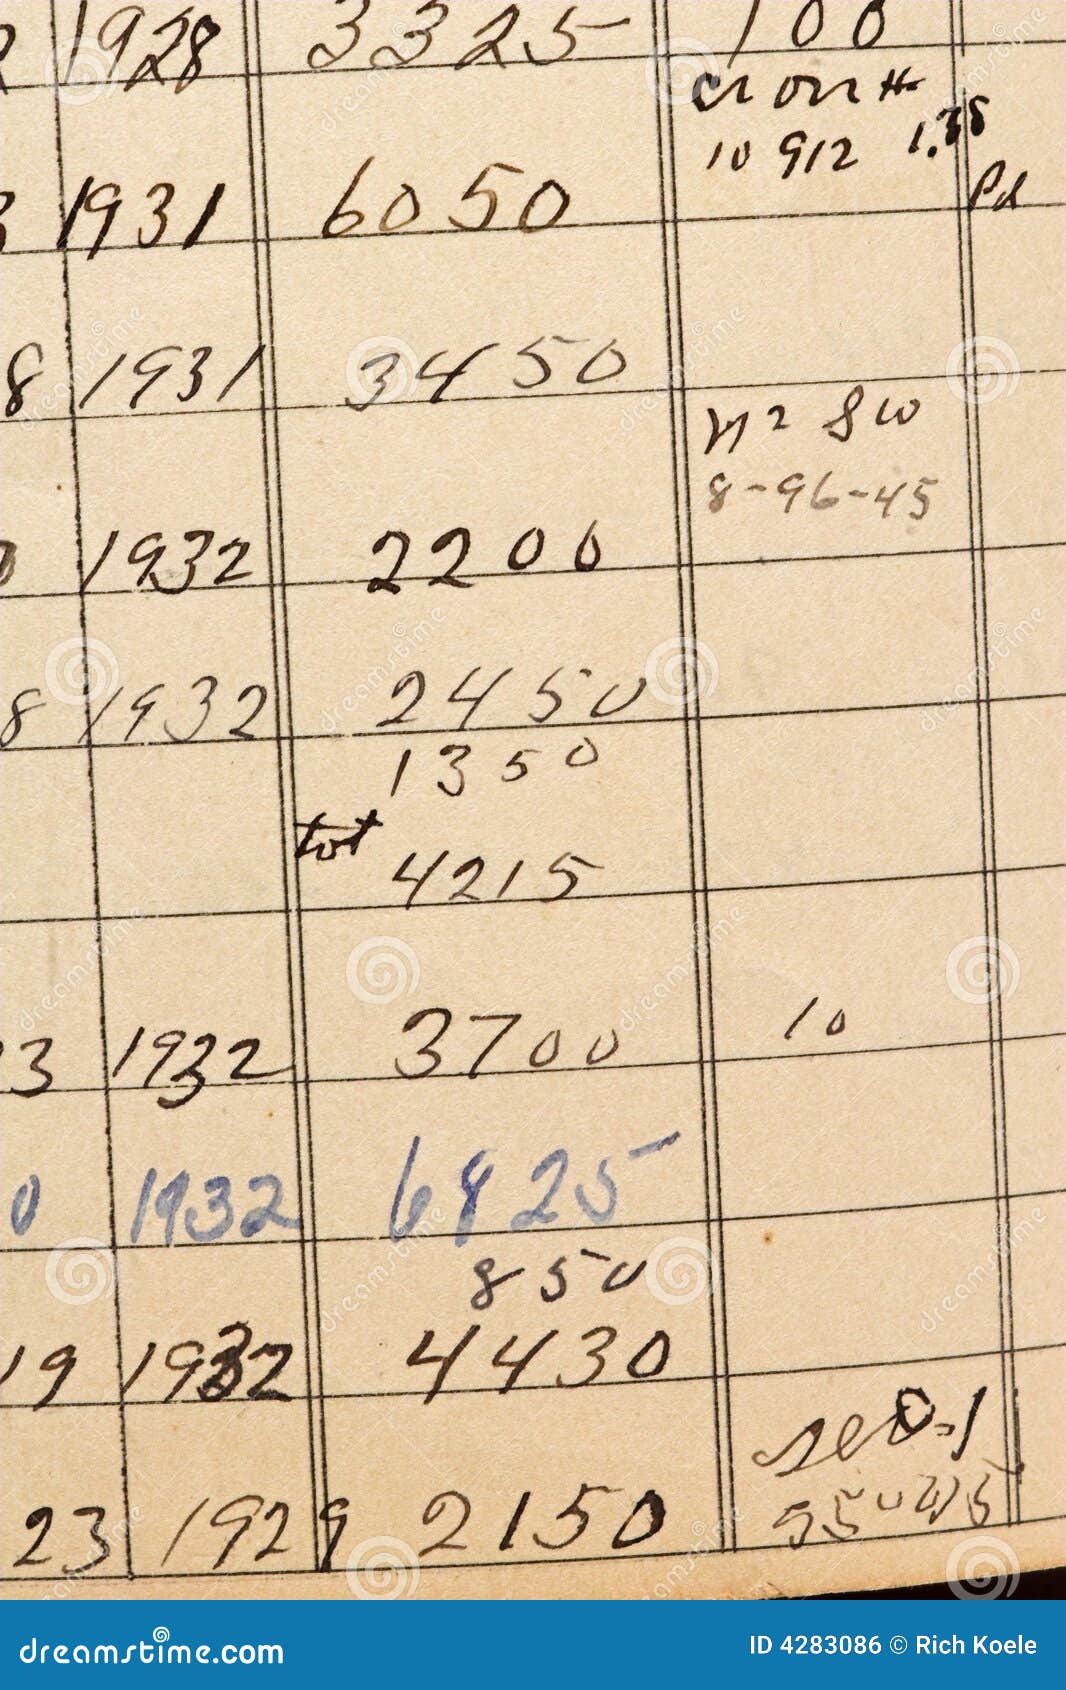 1928 3325 100
on #
10 912 1.35
Pd
3 1931 6050
8 1931 3450
N2 SW
8-96-45
1932 2200
8 1932 2450
1350
tot
4215
3 1932 3700 10
0 1932 6825
850
19 1932 4430
23 1929 2150
dreamstime.com
ID 4283086 © Rich Koele